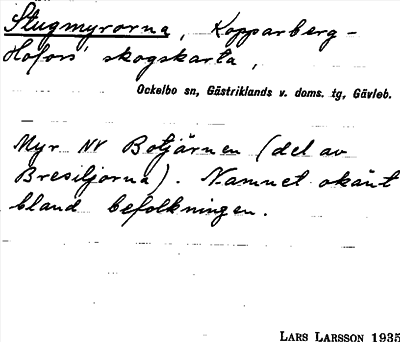 Stugmyrorna, Kopparberg-
Hofors' skogskarta,
Ockelbo sn, Gästriklands v. doms. tg, Gävleb.
Myr NV Botjärnen (del av
Bresiljorna). Namnet okänt
bland befolkningen.
LARS LARSSON 1935